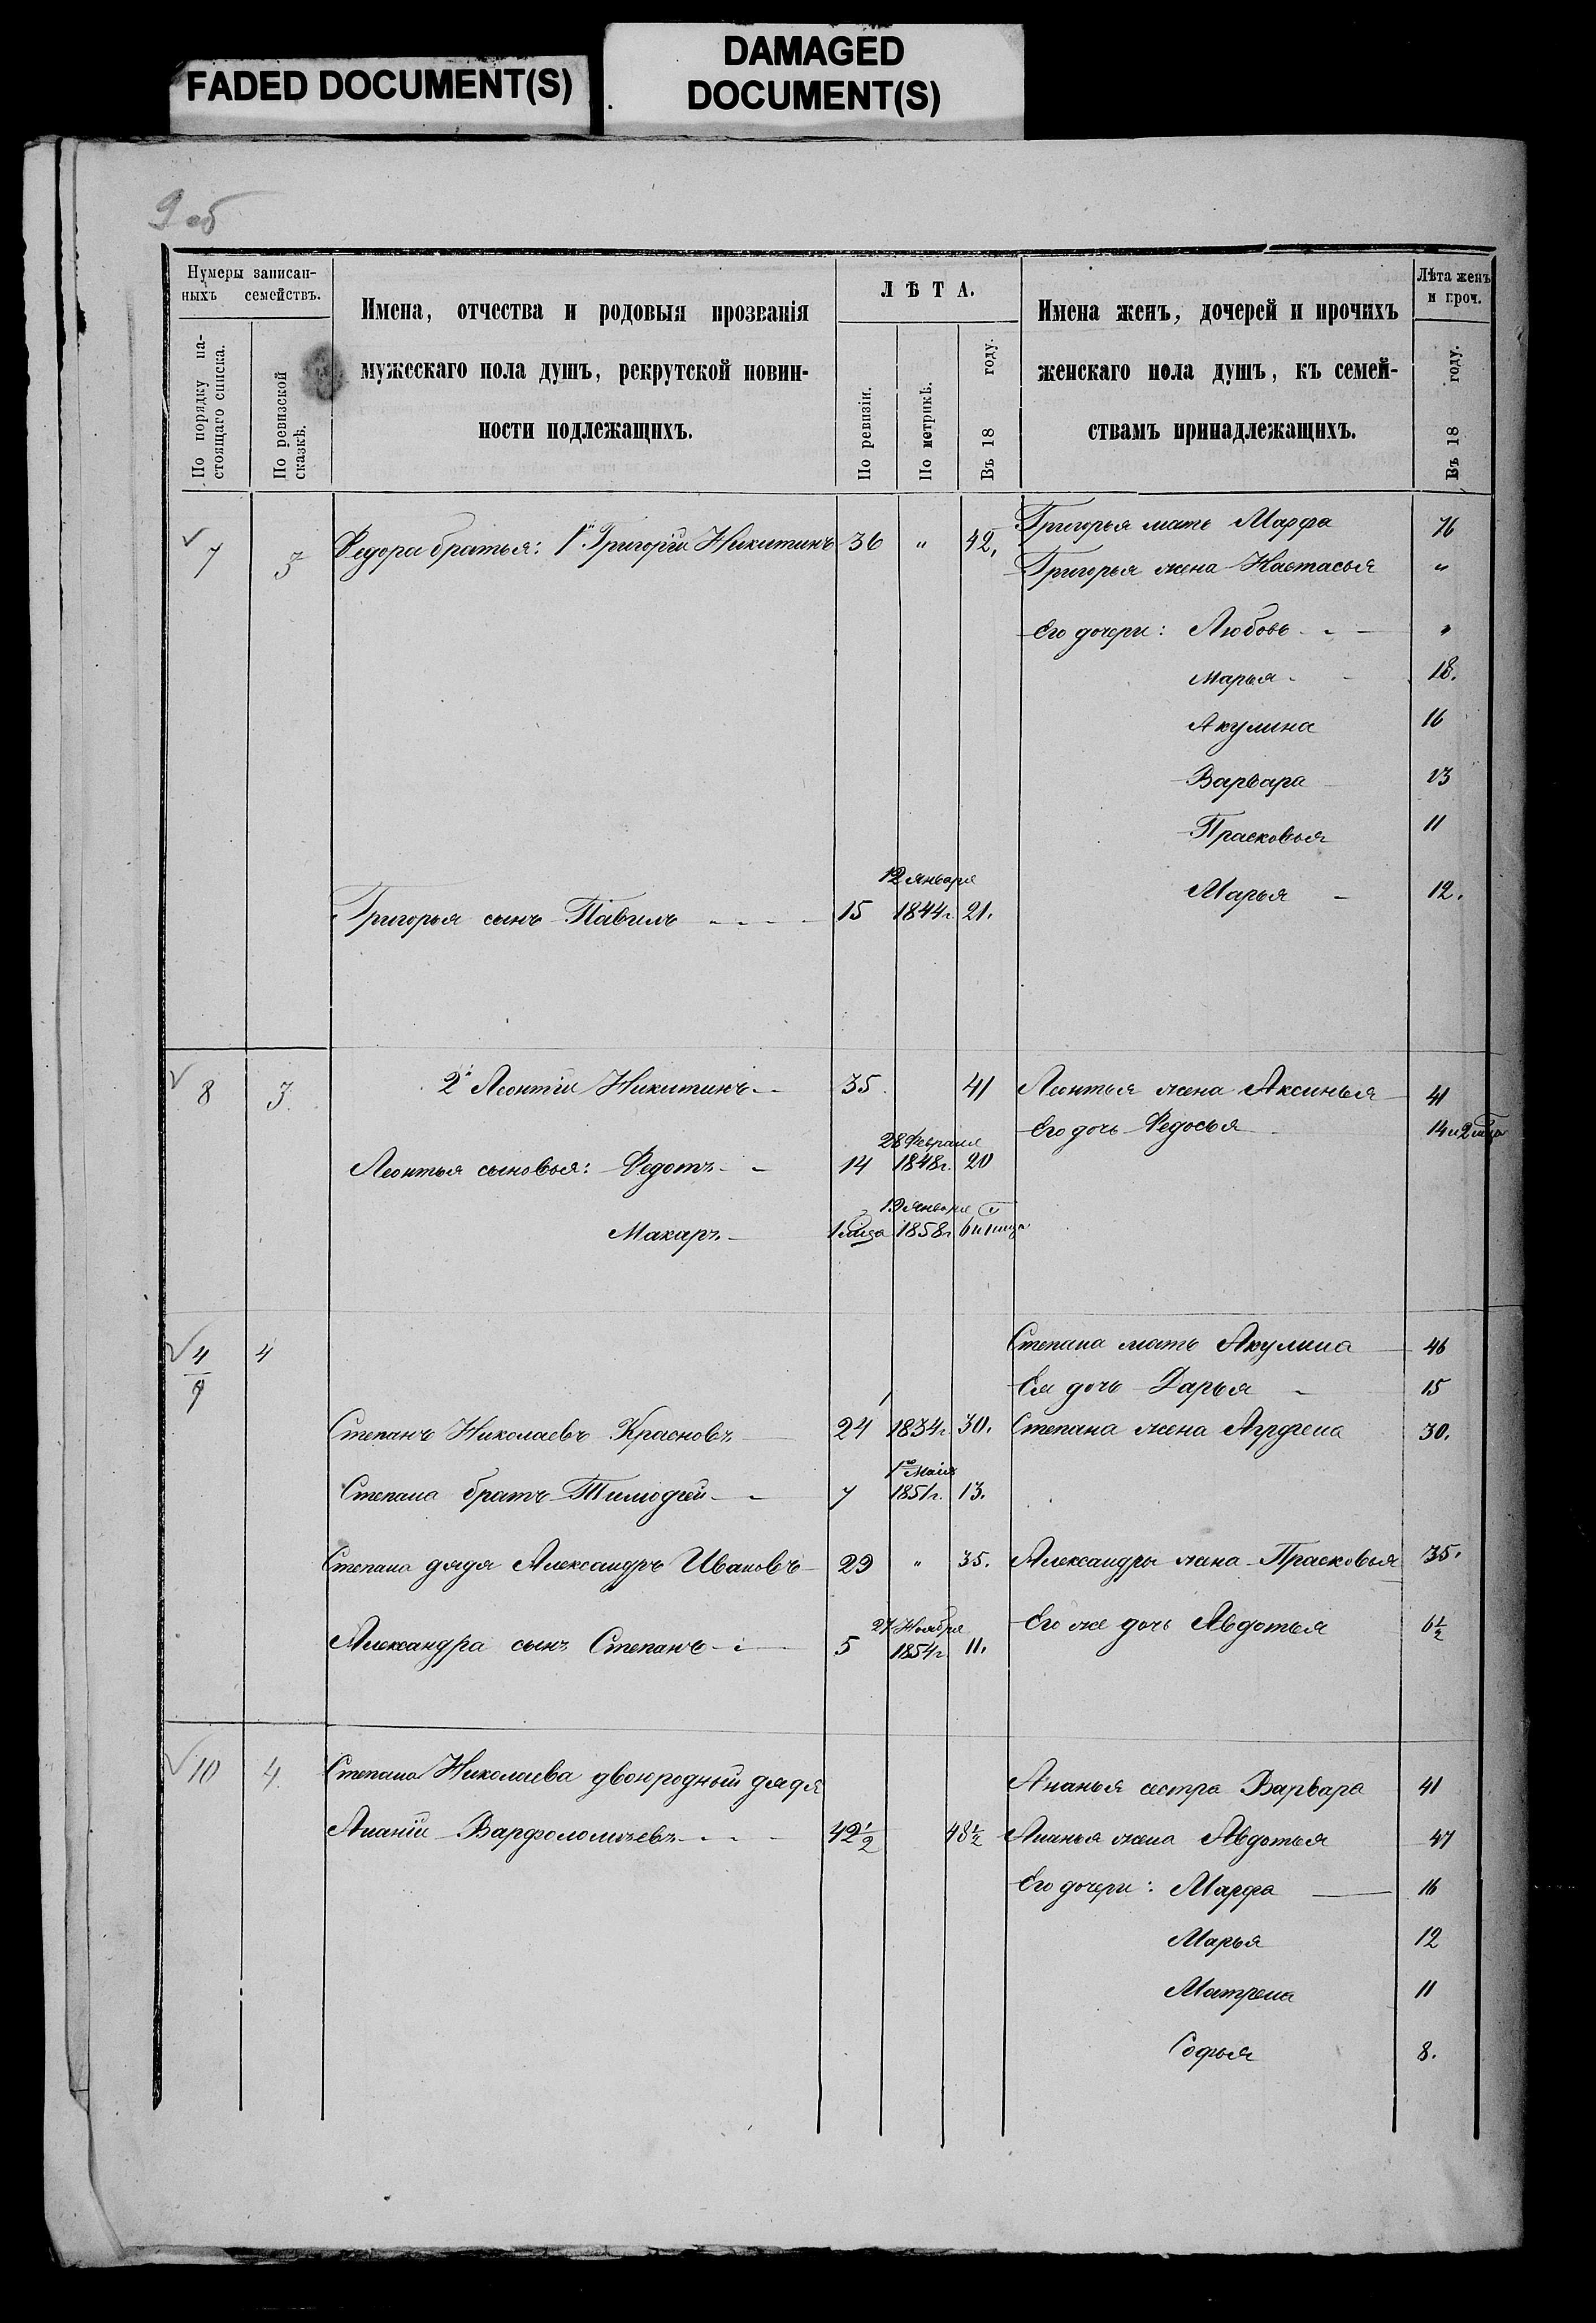 FADED DOCUMENT(S)
DAMAGED
DOCUMENT(S)
9 об
Нумеры записан-
ныхъ семействъ.
По порядку на-
стоящаго списка.
По ревизской
сказкѣ.
Имена, отчества и родовыя прозванія
мужескаго пола душъ, рекрутской повин-
ности подлежащихъ.
ЛѢТА.
По ревизіи.
По метрикѣ.
Въ 18 году.
Имена женъ, дочерей и прочихъ
женскаго пола душъ, къ семей-
ствамъ принадлежащихъ.
Лѣта женъ
и проч.
Въ 18 году.
7 3 Федора братья: 1й Григорій Никитинъ 36 " 42, Григорья мать Марфа 76
Григорья жена Настасья "
Его дочери: Любовь "
Марья 18.
Акулина 16
Варвара 13
Прасковья 11
Марья 12.
12 Января
Григорья сынъ Павилъ 15 1844г. 21.
8 3. 2й Леонтій Никитинъ 35. 41 Леонтья жена Аксинья 41
Его дочь Федосья 14 и 2 мѣца
28 Февраля
Леонтья сыновья: Федотъ 14 1848г. 20
19 Января
Макаръ 1 мѣца 1858г 6 и 1 мѣца
4 4 Степана мать Акулина 46
9 Ея дочь Дарья 15
Степанъ Николаевъ Красновъ 24 1834г. 30. Степана жена Агрфена 30.
1го Маія
Степана братъ Тимофей 7 1851г. 13.
Степана дядя Александръ Ивановъ 29 " 35. Александры жена Прасковья 35.
27 Ноября
Его же дочь Авдотья 6½
Александра сынъ Степанъ 5 1854г 11.
10 4. Степана Николаева двоюродный дядя Ананья сестра Варвара 41
Ананій Варфоломѣевъ 42½ 48½ Ананья жена Авдотья 47
Его дочери: Марфа 16
Марья 12
Матрена 11
Софья 8.